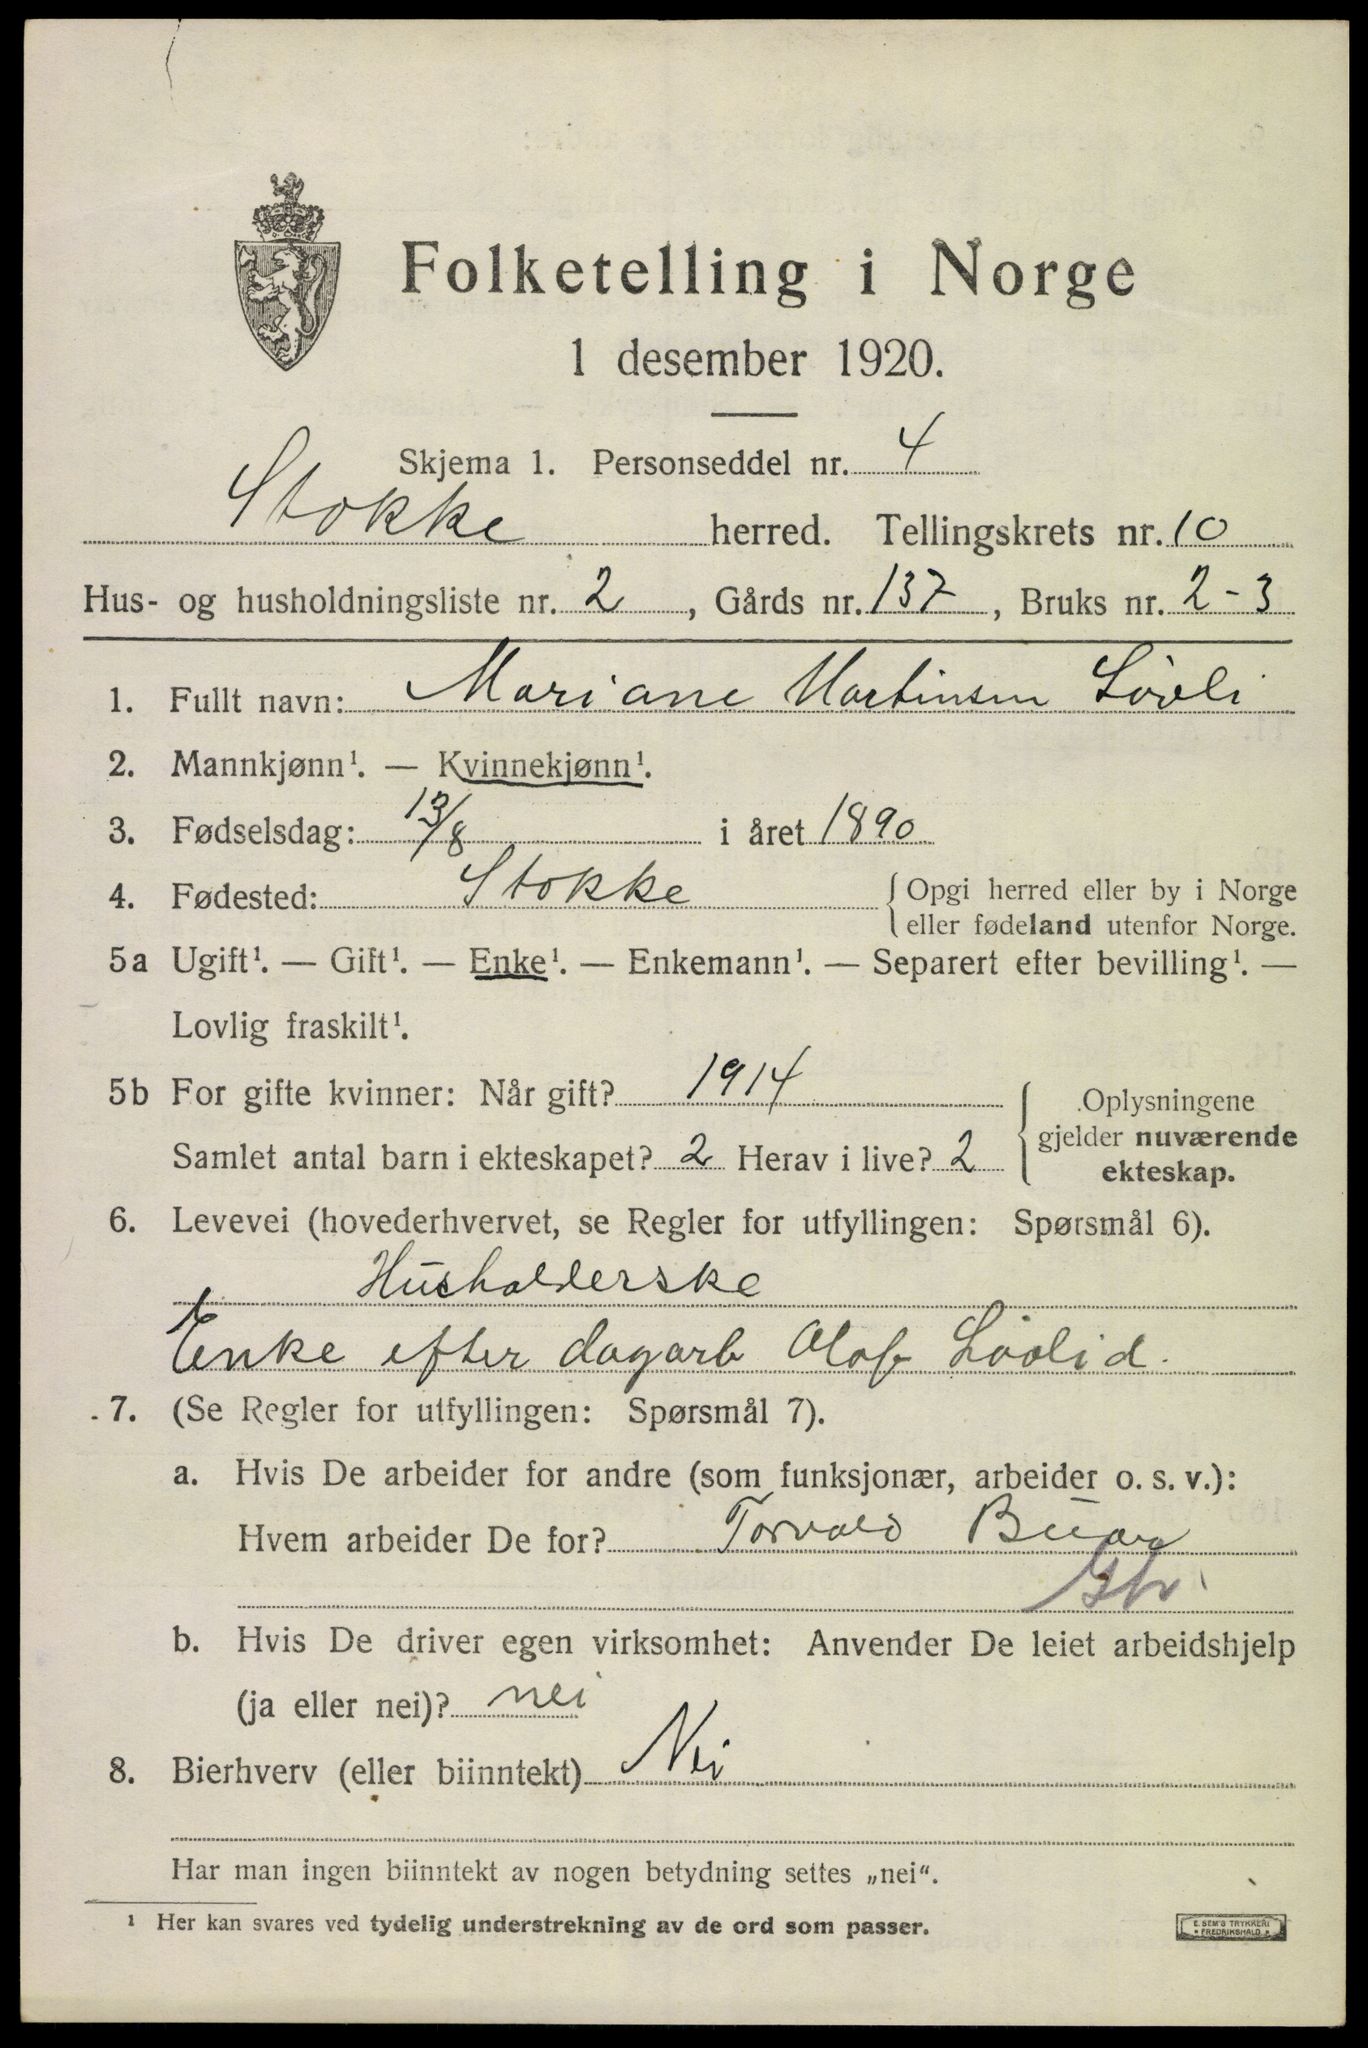 Folketelling i Norge
1 desember 1920.
Skjema 1. Personseddel nr. 4
Stokke herred. Tellingskrets nr. 10
Hus- og husholdningsliste nr. 2, Gårds nr. 137, Bruks nr. 2-3
1. Fullt navn: Mariane Martinsen Lövli
2. Mannkjønn¹. — Kvinnekjønn¹.
3. Fødselsdag: 13/8 i året 1890
4. Fødested: Stokke { Opgi herred eller by i Norge
eller fødeland utenfor Norge.
5a Ugift¹. — Gift¹. — Enke¹. — Enkemann¹. — Separert efter bevilling¹. —
Lovlig fraskilt¹.
5b For gifte kvinner: Når gift? 1914
Samlet antal barn i ekteskapet? 2 Herav i live? 2
Oplysningene
gjelder nuværende
ekteskap.
6. Levevei (hovederhvervet, se Regler for utfyllingen: Spørsmål 6).
Husholderske
Enke efter dagarb Olaf Lövlid.
7. (Se Regler for utfyllingen: Spørsmål 7).
a. Hvis De arbeider for andre (som funksjonær, arbeider o. s. v.):
Hvem arbeider De for? Torvald Buer
b. Hvis De driver egen virksomhet: Anvender De leiet arbeidshjelp
(ja eller nei)? nei
8. Bierhverv (eller biinntekt) Nei
Har man ingen biinntekt av nogen betydning settes „nei“.
¹ Her kan svares ved tydelig understrekning av de ord som passer.
E. SEM'S TRYKKERI
FREDRIKSHALD